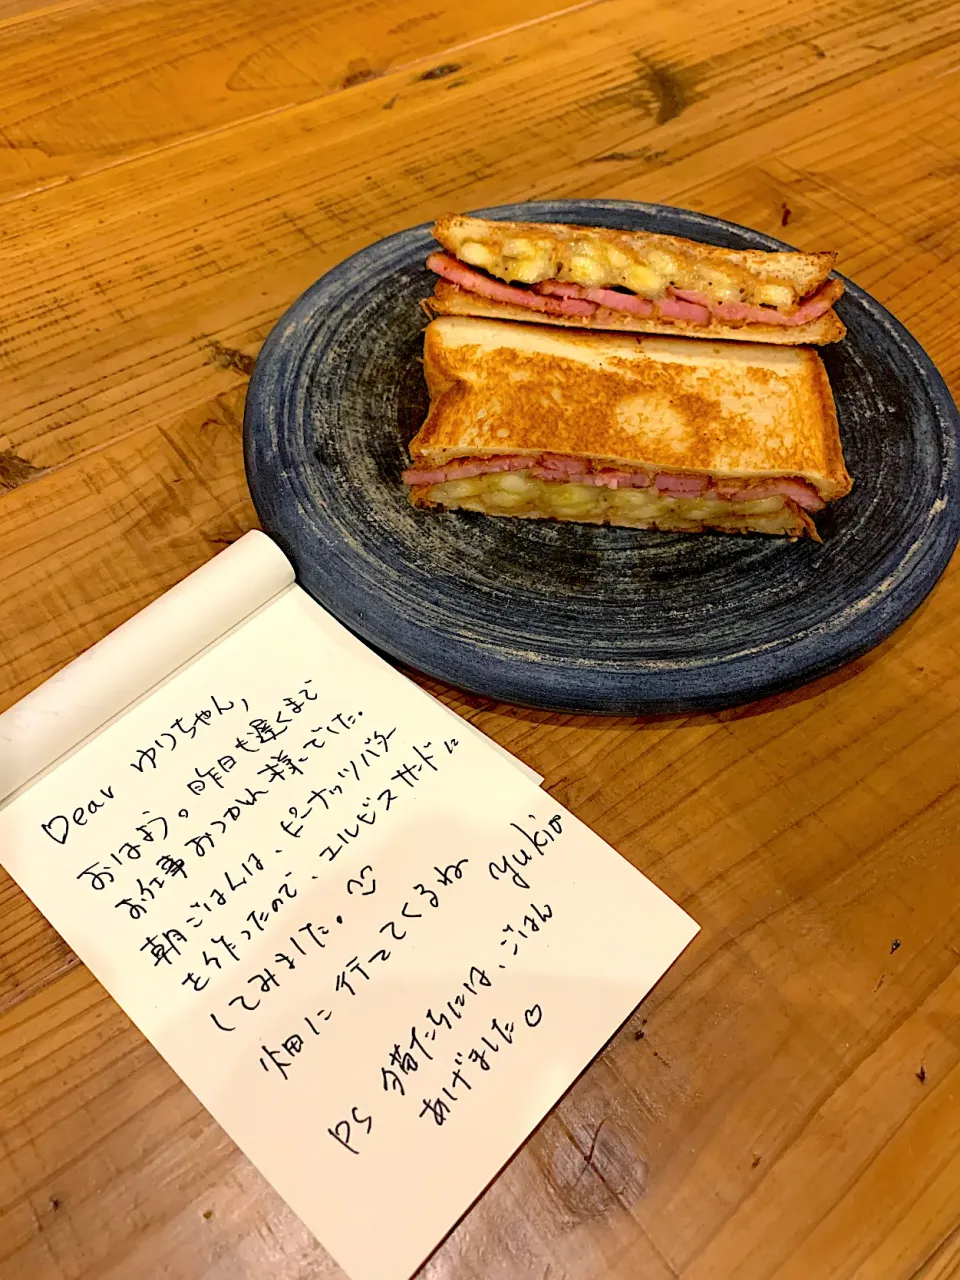 Dear ゆりちゃん,
おはよう。昨日も遅くまで
お仕事おつかれ様でした。
朝ごはんは、ピーナッツバター
を作ったので、エルビスサンドに
してみました。
畑に行ってくるね
yukio
PS 猫たちには、ごはん
あげました♡